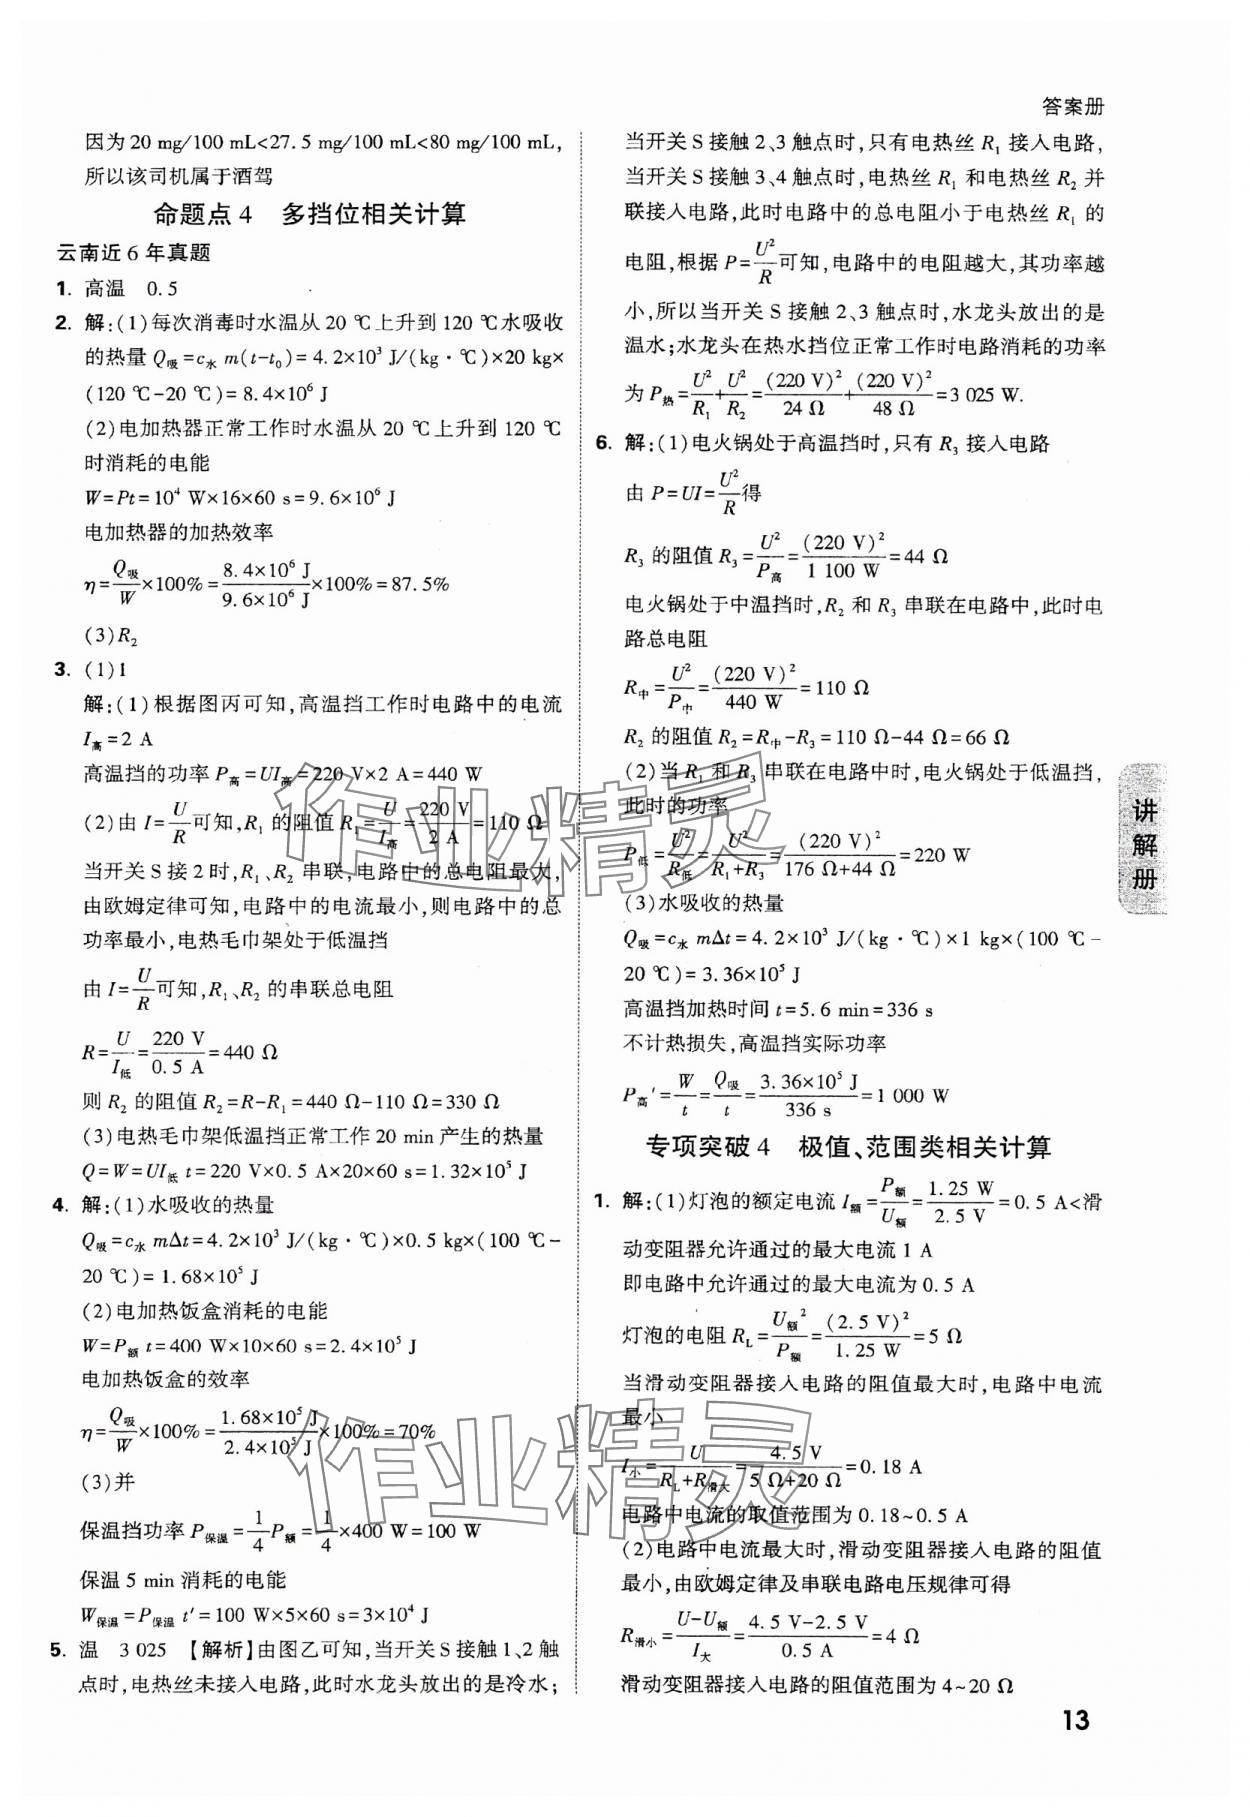 答案册
因为20 mg/100 mL<27.5 mg/100 mL<80 mg/100 mL,
所以该司机属于酒驾
命题点4 多挡位相关计算
云南近6年真题
1. 高温 0.5
2. 解:(1)每次消毒时水温从20 ℃上升到120 ℃水吸收
的热量Q吸=c水 m(t-t₀)=4.2×10³ J/(kg·℃)×20 kg×
(120 ℃-20 ℃)=8.4×10⁶ J
(2)电加热器正常工作时水温从20 ℃上升到120 ℃
时消耗的电能
W=Pt=10⁴ W×16×60 s=9.6×10⁶ J
电加热器的加热效率
η=Q吸/W×100%=8.4×10⁶ J/9.6×10⁶ J×100%=87.5%
(3)R₂
3. (1)1
解:(1)根据图丙可知,高温挡工作时电路中的电流
I高=2 A
高温挡的功率P高=UI高=220 V×2 A=440 W
(2)由I=U/R可知,R₁的阻值R₁=U/I高=220 V/2 A=110 Ω
当开关S接2时,R₁、R₂串联,电路中的总电阻最大,
由欧姆定律可知,电路中的电流最小,则电路中的总
功率最小,电热毛巾架处于低温挡
由I=U/R可知,R₁、R₂的串联总电阻
R=U/I低=220 V/0.5 A=440 Ω
则R₂的阻值R₂=R-R₁=440 Ω-110 Ω=330 Ω
(3)电热毛巾架低温挡正常工作20 min产生的热量
Q=W=UI低 t=220 V×0.5 A×20×60 s=1.32×10⁵ J
4. 解:(1)水吸收的热量
Q吸=c水 mΔt=4.2×10³ J/(kg·℃)×0.5 kg×(100 ℃-
20 ℃)=1.68×10⁵ J
(2)电加热饭盒消耗的电能
W=P额 t=400 W×10×60 s=2.4×10⁵ J
电加热饭盒的效率
η=Q吸/W×100%=1.68×10⁵ J/2.4×10⁵ J×100%=70%
(3)并
保温挡功率P保温=1/4P额=1/4×400 W=100 W
保温5 min消耗的电能
W保温=P保温 t′=100 W×5×60 s=3×10⁴ J
5. 温 3 025 【解析】由图乙可知,当开关S接触1、2触
点时,电热丝未接入电路,此时水龙头放出的是冷水;
当开关S接触2、3触点时,只有电热丝R₁接入电路,
当开关S接触3、4触点时,电热丝R₁和电热丝R₂并
联接入电路,此时电路中的总电阻小于电热丝R₁的
电阻,根据P=U²/R可知,电路中的电阻越大,其功率越
小,所以当开关S接触2、3触点时,水龙头放出的是
温水;水龙头在热水挡位正常工作时电路消耗的功率
为P热=U²/R₁+U²/R₂=(220 V)²/24 Ω+(220 V)²/48 Ω=3 025 W.
6. 解:(1)电火锅处于高温挡时,只有R₃接入电路
由P=UI=U²/R得
R₃的阻值R₃=U²/P高=(220 V)²/1 100 W=44 Ω
电火锅处于中温挡时,R₂和R₃串联在电路中,此时电
路总电阻
R中=U²/P中=(220 V)²/440 W=110 Ω
R₂的阻值R₂=R中-R₃=110 Ω-44 Ω=66 Ω
(2)当R₁和R₃串联在电路中时,电火锅处于低温挡,
此时的功率
P低=U²/R低=U²/R₁+R₃=(220 V)²/176 Ω+44 Ω=220 W
(3)水吸收的热量
Q吸=c水 mΔt=4.2×10³ J/(kg·℃)×1 kg×(100 ℃-
20 ℃)=3.36×10⁵ J
高温挡加热时间t=5.6 min=336 s
不计热损失,高温挡实际功率
P高′=W/t=Q吸/t=3.36×10⁵ J/336 s=1 000 W
专项突破4 极值、范围类相关计算
1. 解:(1)灯泡的额定电流I额=P额/U额=1.25 W/2.5 V=0.5 A<滑
动变阻器允许通过的最大电流1 A
即电路中允许通过的最大电流为0.5 A
灯泡的电阻R_L=U额²/P额=(2.5 V)²/1.25 W=5 Ω
当滑动变阻器接入电路的阻值最大时,电路中电流
最小
I小=U/R_L+R滑大=4.5 V/5 Ω+20 Ω=0.18 A
电路中电流的取值范围为0.18~0.5 A
(2)电路中电流最大时,滑动变阻器接入电路的阻值
最小,由欧姆定律及串联电路电压规律可得
R滑小=U-U额/I大=4.5 V-2.5 V/0.5 A=4 Ω
滑动变阻器接入电路的阻值范围为4~20 Ω
讲解册
13
作业精灵
作业精灵